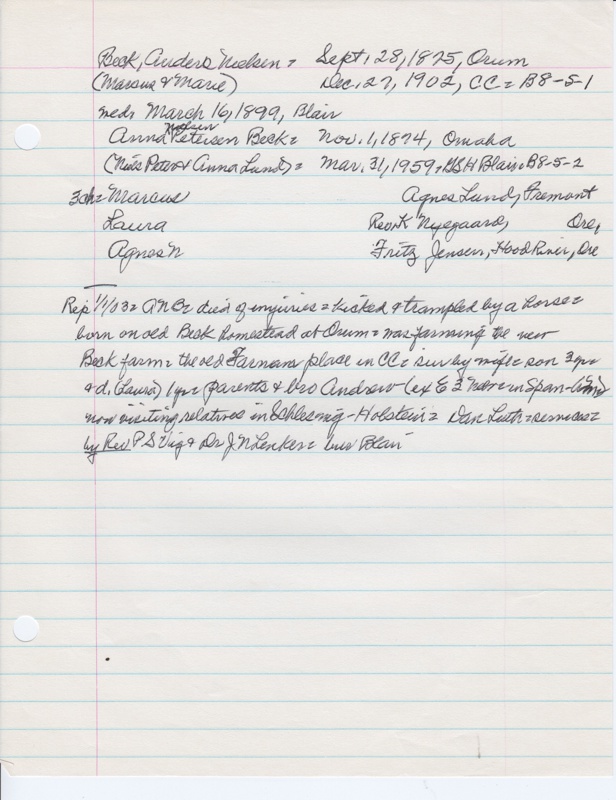 Beck, Anders Nielsen = Sept. 28, 1875, Orum
(Marcus & Marie) Dec. 27, 1902, CC = B8-5-1
med: March 16, 1899, Blair
Nielsen
Anna Petersen Beck = Nov. 1, 1874, Omaha
(Niels Peter & Anna Lund) = Mar. 31, 1959, Blair = B8-5-2
3ch = Marcus Agnes Lund, Fremont
Laura Rev. K Nyegaard, Ore,
Agnes N Fritz Jensen, Hood River, Ore
Rep 1/1/03 = ANB = died of injuries = kicked & trampled by a horse =
born on old Beck homestead at Orum = was farming the new
Beck farm = the old Farnam place in CC = sur by wife = son 3 yr
& d. (Laura) 1 yr = parents & bro Andrew - (ex Co E 3 Nebr in Span-Am)
now visiting relatives in Schleswig-Holstein = Dan Luth = services =
by Rev P S Vig & Dr J N Lenker = bur Blair